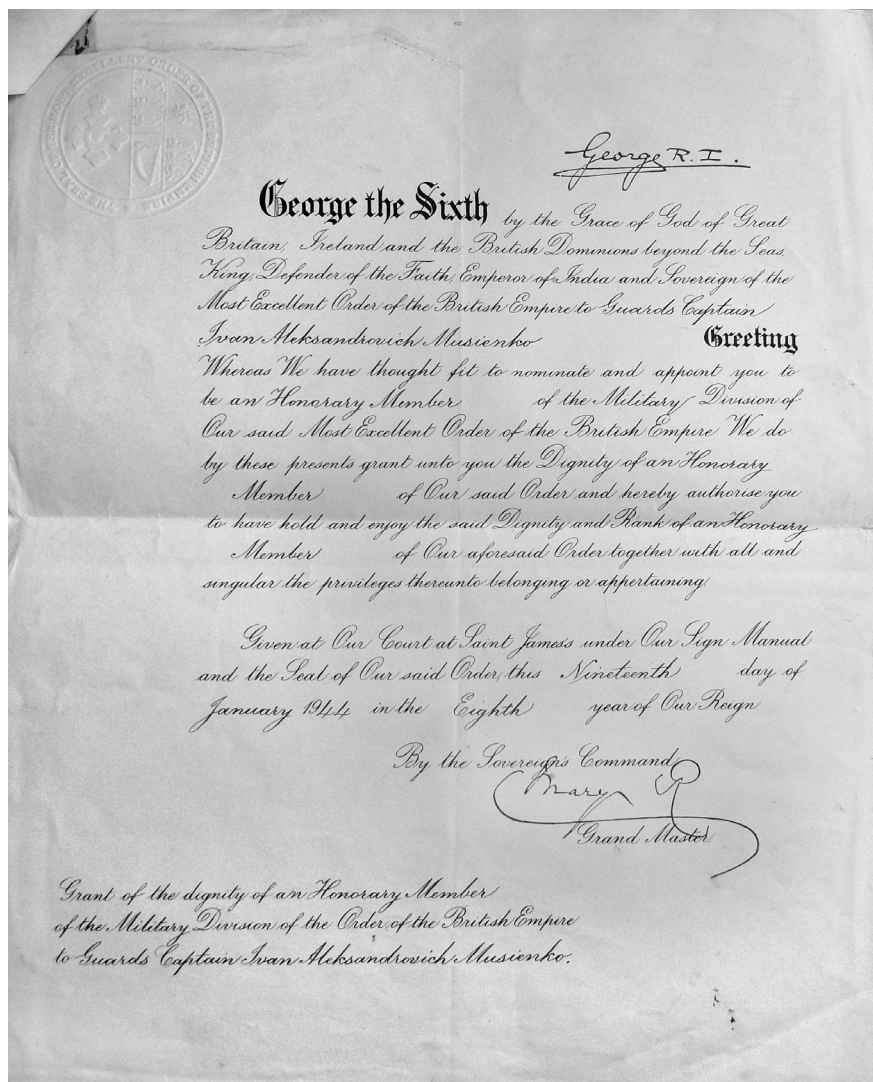 THE SEAL OF THE MOST EXCELLENT ORDER OF THE BRITISH EMPIRE
George R. I.
George the Sixth by the Grace of God of Great
Britain, Ireland and the British Dominions beyond the Seas,
King, Defender of the Faith, Emperor of India and Sovereign of the
Most Excellent Order of the British Empire to Guards Captain
Ivan Aleksandrovich Musienko Greeting
Whereas We have thought fit to nominate and appoint you to
be an Honorary Member of the Military Division of
Our said Most Excellent Order of the British Empire We do
by these presents grant unto you the Dignity of an Honorary
Member of Our said Order and hereby authorise you
to have hold and enjoy the said Dignity and Rank of an Honorary
Member of Our aforesaid Order together with all and
singular the privileges thereunto belonging or appertaining.
Given at Our Court at Saint James's under Our Sign Manual
and the Seal of Our said Order, this Nineteenth day of
January 1944 in the Eighth year of Our Reign
By the Sovereign's Command,
Mary R
Grand Master
Grant of the dignity of an Honorary Member
of the Military Division of the Order of the British Empire
to Guards Captain Ivan Aleksandrovich Musienko.